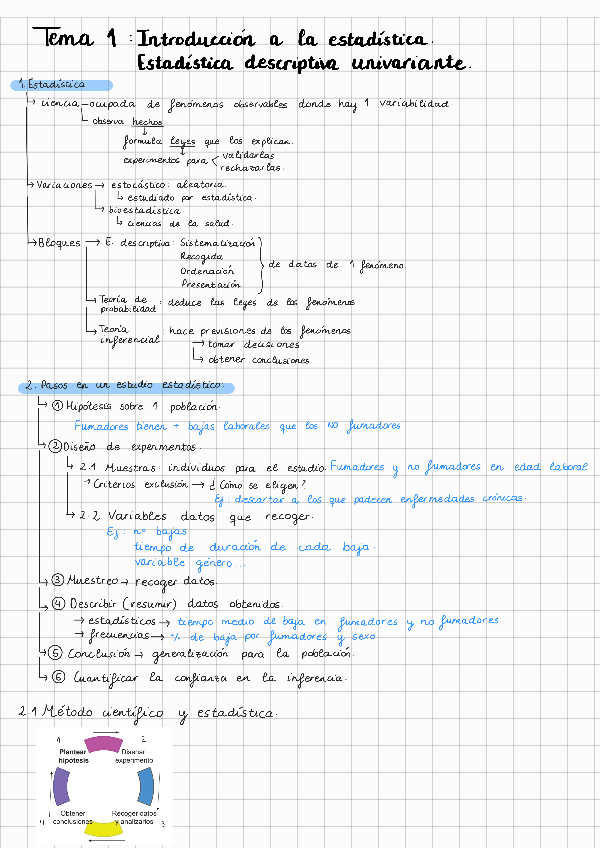 Tema 1: Introducción a la estadística.
Estadística descriptiva univariante.
1. Estadística.
↳ ciencia – ocupada de fenómenos observables donde hay 1 variabilidad.
↳ observa hechos
↓
formula leyes que los explican.
↓
experimentos para < validarlas
rechazarlas.
↳ Variaciones → estocástico: aleatoria.
↳ estudiado por estadística.
↳ bioestadística
↳ ciencias de la salud.
↳ Bloques → E. descriptiva: Sistematización
Recogida
Ordenación
Presentación
} de datos de 1 fenómeno.
↳ Teoría de probabilidad: deduce las leyes de los fenómenos
↳ Teoría inferencial: hace previsiones de los fenómenos
→ tomar decisiones
↳ obtener conclusiones
2. Pasos en un estudio estadístico.
↳ ① Hipótesis sobre 1 población.
Fumadores tienen + bajas laborales que los NO fumadores
↳ ② Diseño de experimentos.
↳ 2.1 Muestras: individuos para el estudio. Fumadores y no fumadores en edad laboral
→ Criterios exclusión → ¿Cómo se eligen?
Ej: descartar a los que padecen enfermedades crónicas.
↳ 2.2 Variables datos que recoger.
Ej: nº bajas
tiempo de duración de cada baja.
variable género...
↳ ③ Muestreo → recoger datos.
↳ ④ Describir (resumir) datos obtenidos.
→ estadísticos → tiempo medio de baja en fumadores y no fumadores
→ frecuencias → % de baja por fumadores y sexo
↳ ⑤ Conclusión → generalización para la población.
↳ ⑥ Cuantificar la confianza en la inferencia.
2.1 Método científico y estadística.
1 → 2
Plantear hipótesis
Diseñar experimento
Obtener conclusiones
Recoger datos y analizarlos
4 ← 3